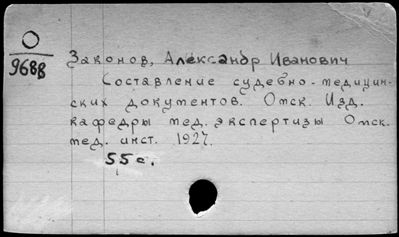 О
9688
Законов, Александр Иванович
Составление судебно-медицин-
ских документов. Омск. Изд.
кафедры мед. экспертизы Омск.
мед. инст. 1927.
55 с.